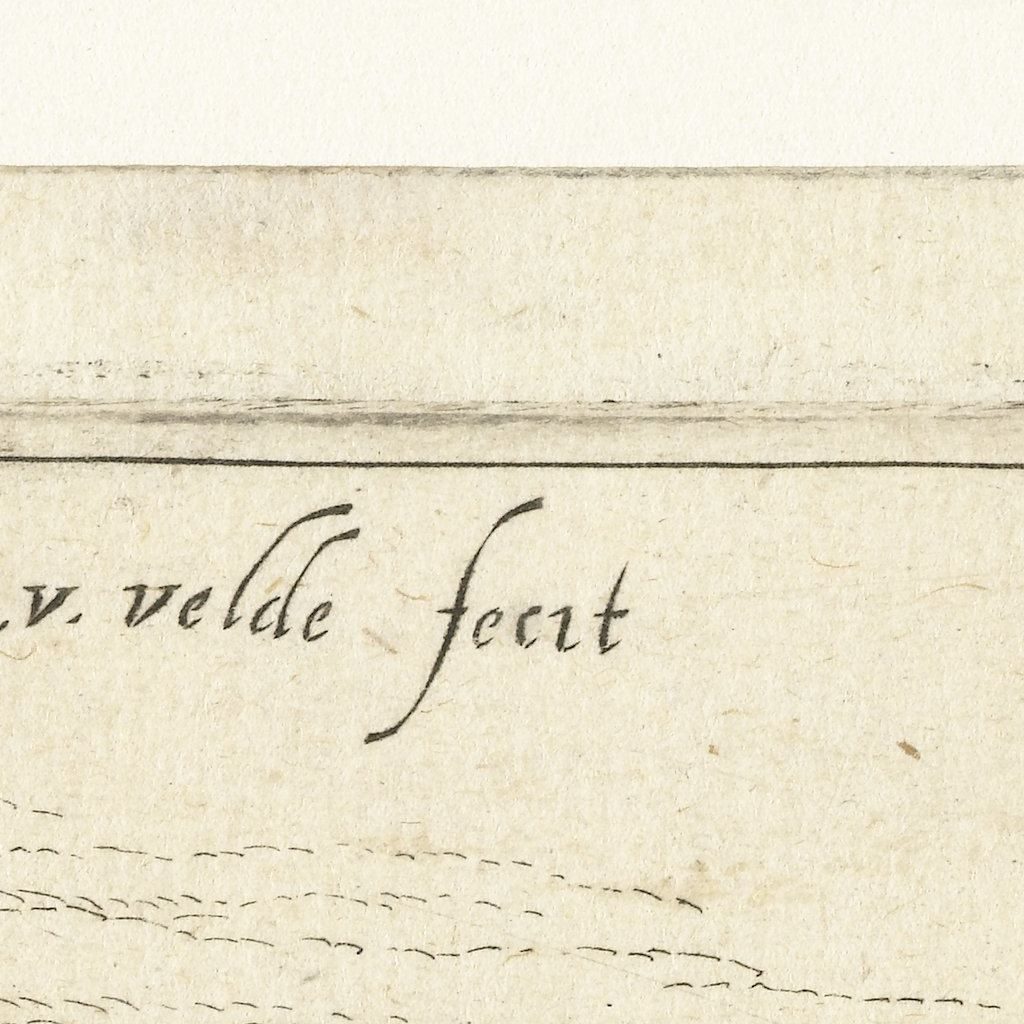 v. velde fecit